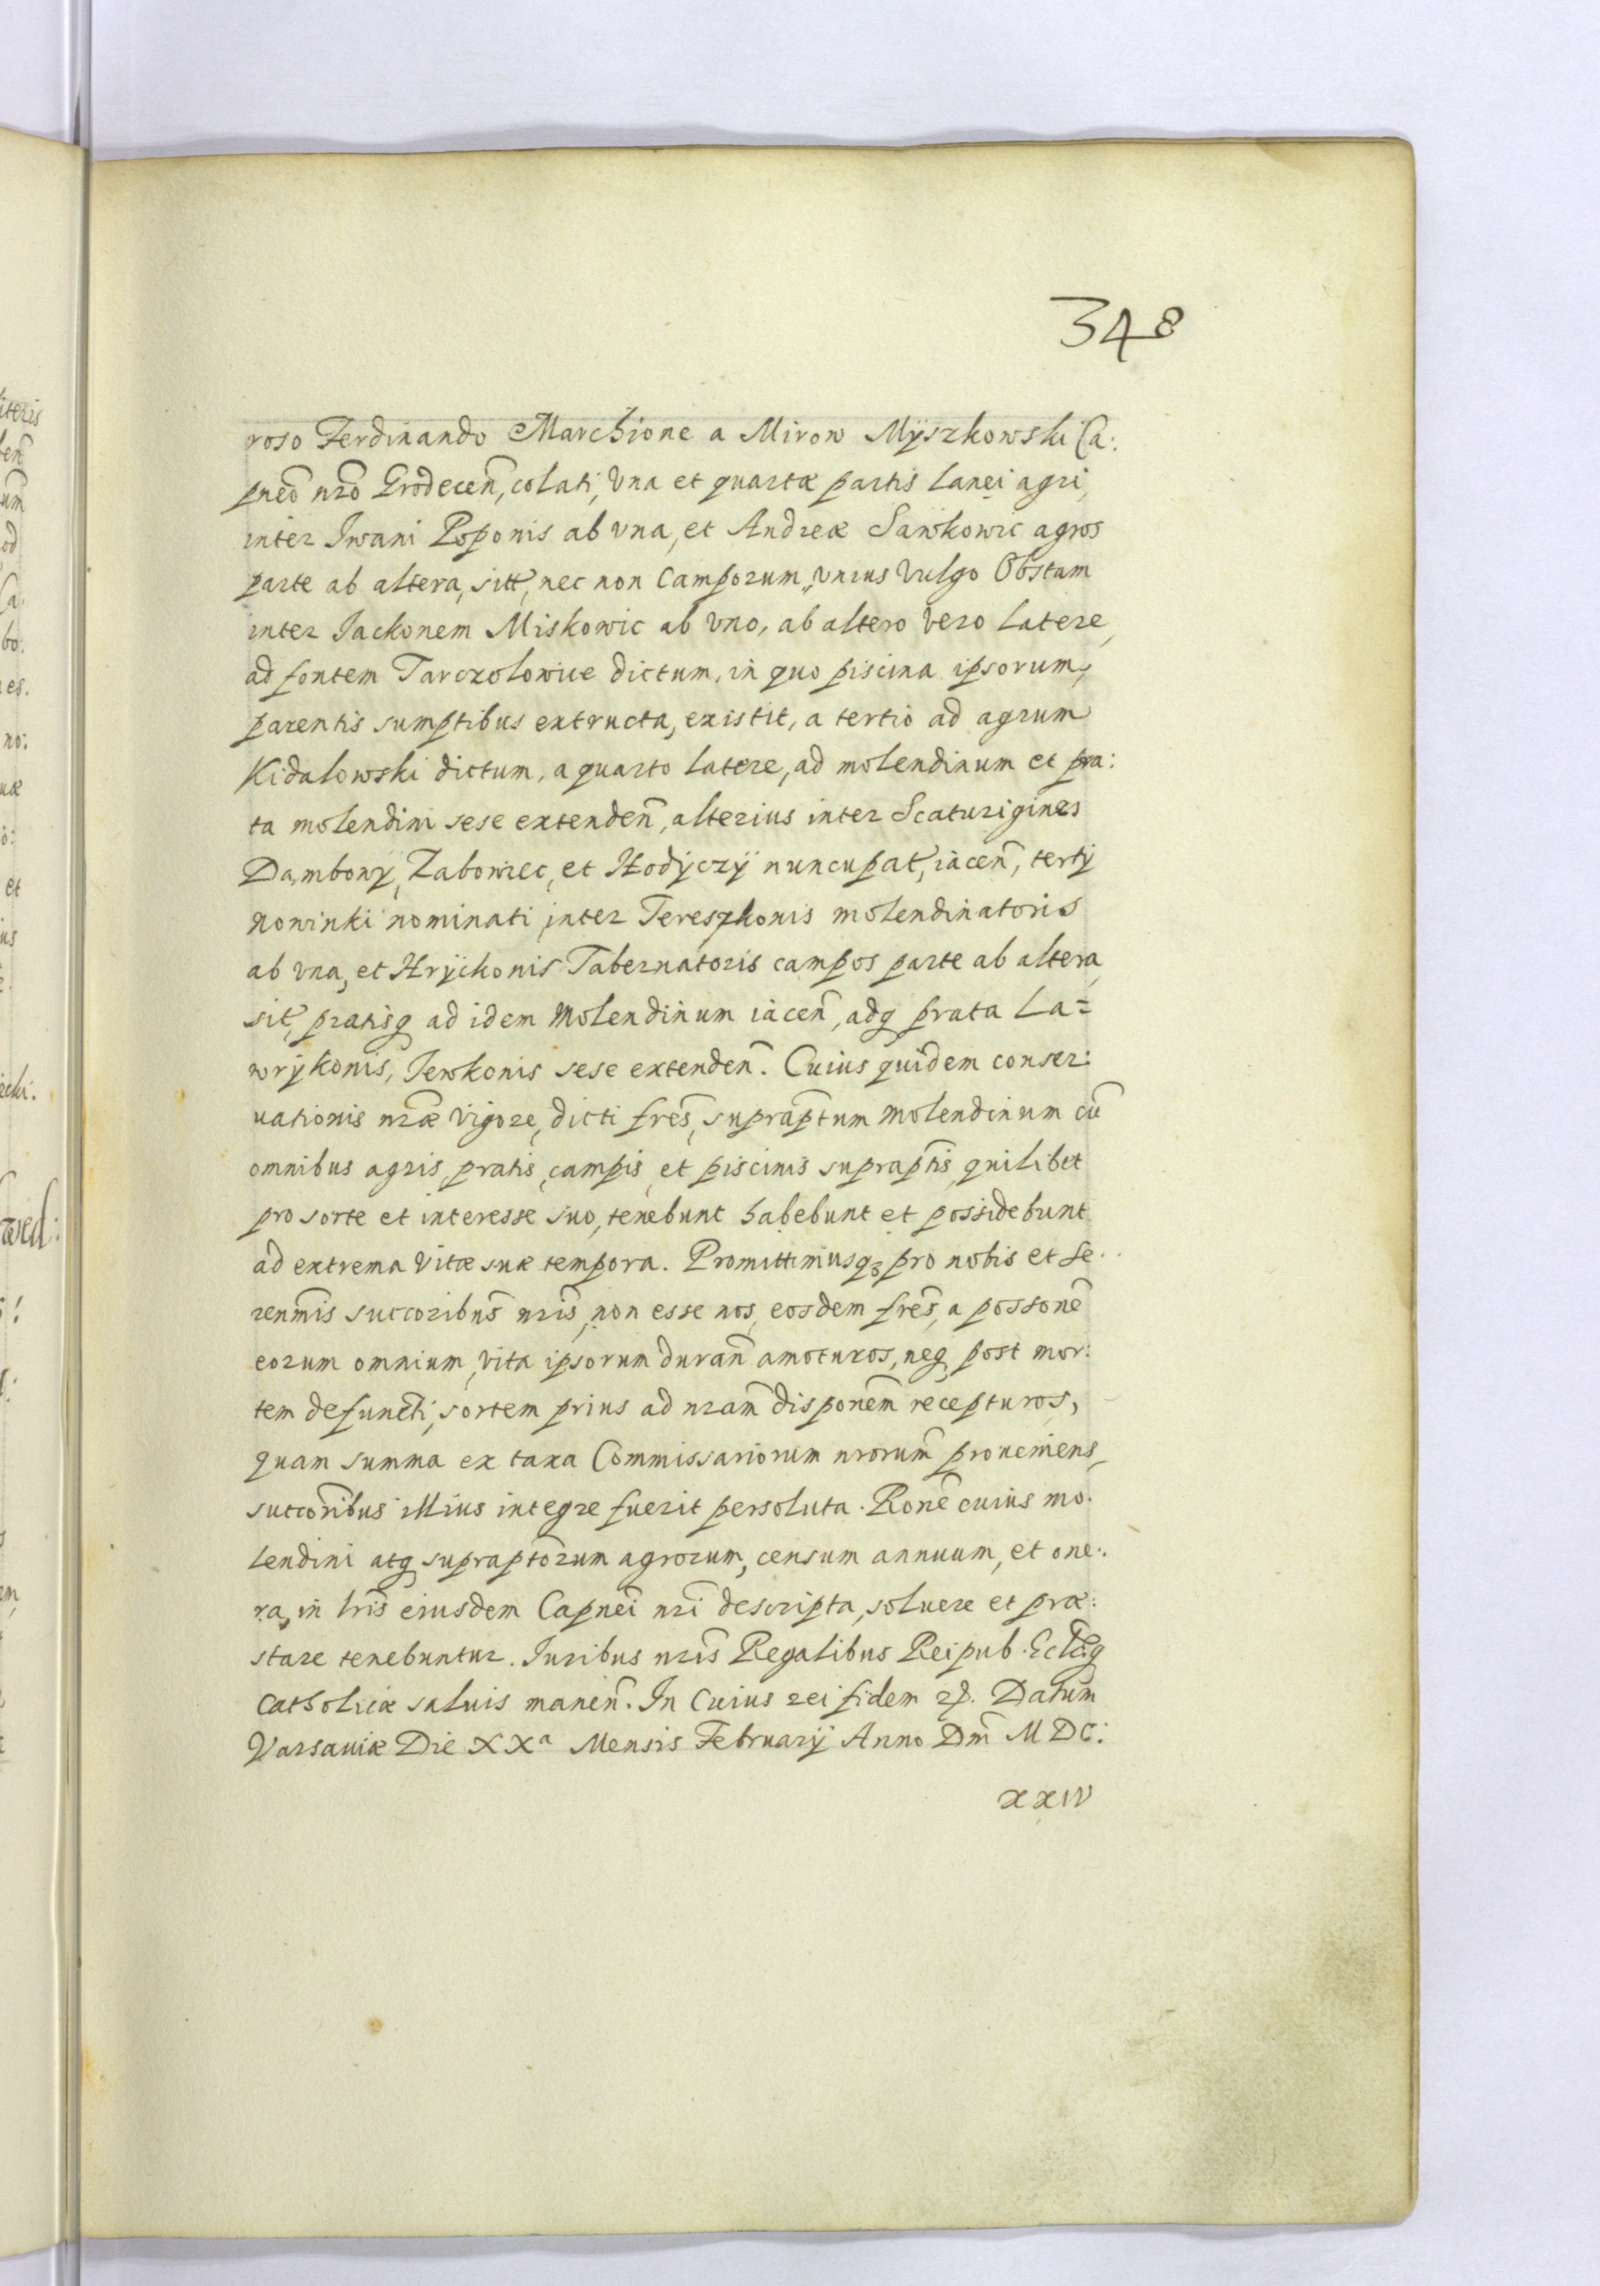 348
roso Ferdinando Marchione a Mirow Mÿszkowski Ca:
pneõ nrõ Grodecen̄, colati, Vna et quartæ partis Lanei agri,
inter Iwani Poponis ab vna, et Andreæ Sawkowic agros
parte ab altera, sitt, nec non Camporum, vnius vulgo Obstam
inter Iackonem Miskowic ab vno, ab altero vero latere,
ad fontem Tarczolowice dictum, in quo piscina ipsorum,
parentis sumptibus extructa, existit, a tertio ad agrum
Kidalowski dictum, a quarto latere, ad molendinum et pra:
ta molendini sese extenden̄, alterius inter Scaturigines
Dambonÿ, Zabowiec, et Hodÿczÿ nuncupat, iacen̄, tertÿ
nowinki nominati inter Tereszkonis molendinatoris
ab vna, et Hrÿckonis Tabernatoris campos parte ab altera,
sit, pratisq ad idem Molendinum iacen̄, adq prata La=
wrÿkonis, Iewkonis sese extenden̄. Cuius quidem conser:
uationis nræ̃ vigore, dicti frẽs, suprap̃tum molendinum cũ
omnibus agris, pratis, campis, et piscinis suprap̃tis, quilibet
pro sorte et interesse suo, tenebunt habebunt et possidebunt
ad extrema vitæ suæ tempora. Promittimusq pro nobis et Se:
ren̄mis succoribus̃ nrĩs, non esse nos, eosdem frẽs, a possonẽ
eorum omnium, vita ipsorum duran̄ amoturos, neq post mor:
tem defuncti, sortem prius ad nram̃ disponem̃ recepturos,
quam summa ex taxa Commissariorum nrorum̃ proueniens,
succorĩbus illius integre fuerit persoluta. Ronẽ cuius mo:
lendini atq suprap̃torum agrorum, censum annuum, et one:
ra, in lrĩs eiusdem Capneĩ nrĩ descripta, soluere et præ:
stare tenebuntur. Iuribus nrĩs Regalibus Reipub. Ecl̃æq
Catholicæ saluis manen̄. In Cuius rei fidem &. Datum
Varsauiæ Die XXª Mensis Februarÿ Anno Dnĩ MDC:
xxiv